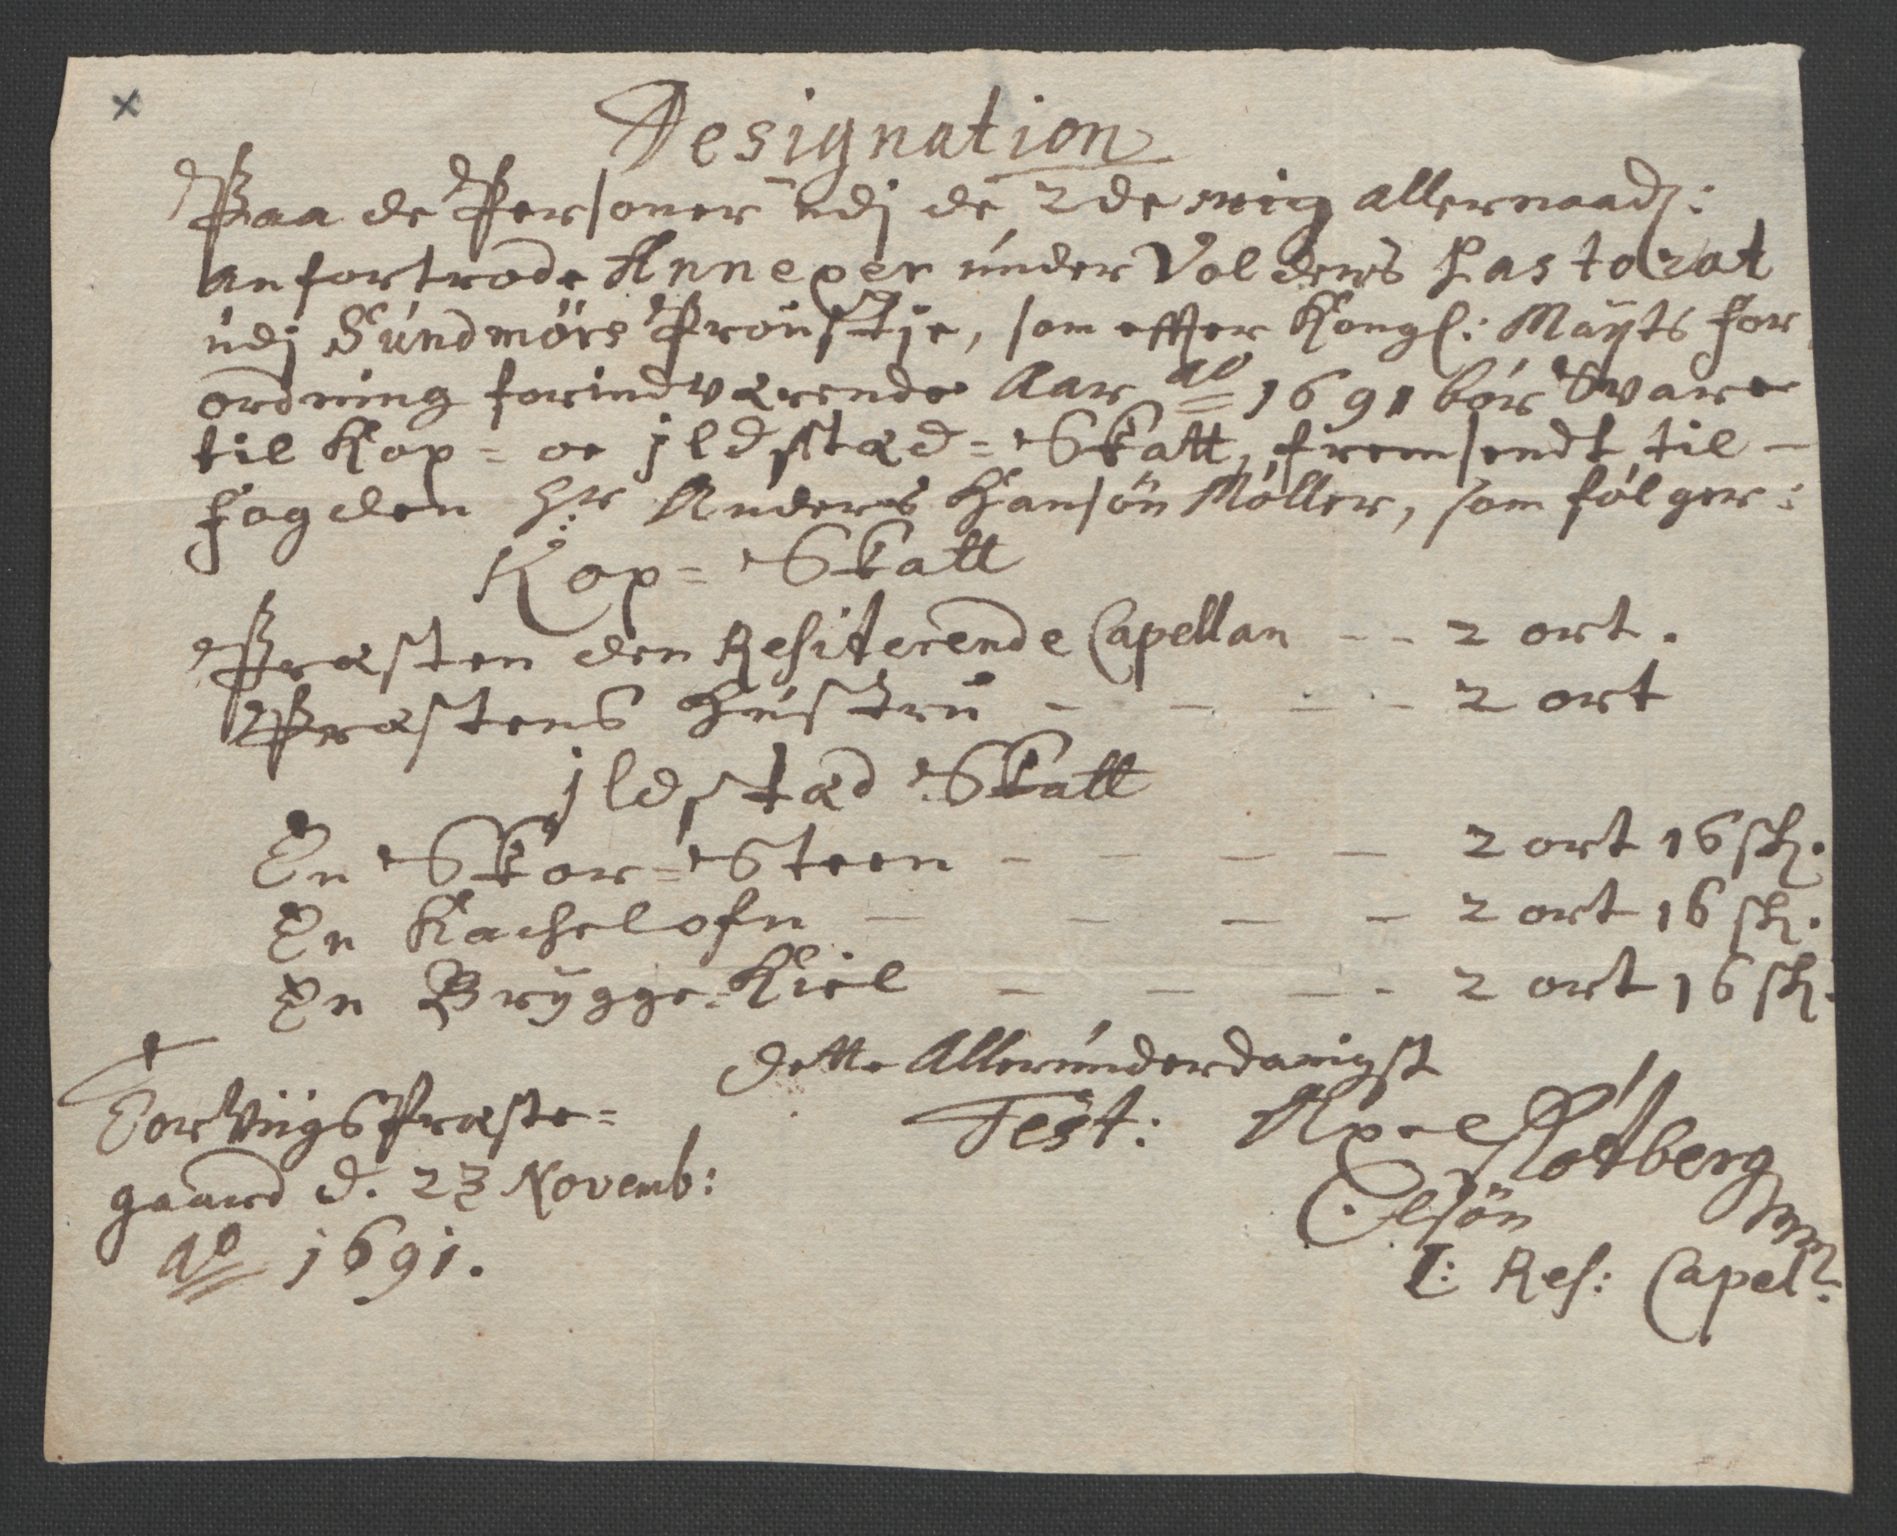 Designation
Paa de Personer udj de 2de mig allernaadl:
anfortrode Annexer under Voldens Pastorat
udj Sundmörs Proustje, som effter Kongl: Mayts for
ordning forindværende Aar Ao 1691 bör Svare
til Kop= oc jldstæd=Skatt, fremsendt til
fogden Hr Anders Hansön Möller, som fölger:
Kop=Skatt
Præsten den Resiterende Capellan -- 2 ort.
Præstens Hustru - - - - 2 ort
jldstæd Skatt
En Skor=Steen - - - - 2 ort 16 sk.
En Kachelofn - - - - 2 ort 16 sk.
En Brygge=Kiel - - - - 2 ort 16 sk.
Dette Allerunderdanigst
Test: Axel Rotberg
Elsön
Res: Capel:
Præste=
gaard d. 23 Novemb:
Ao 1691.